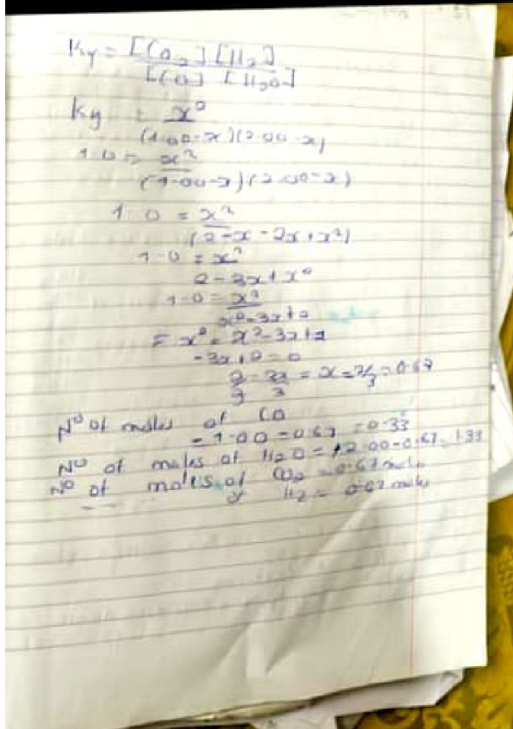 Ky = [CO2] [H2]
[CO] [H2O]
Ky = x²
(1.00-x)(2.00-x)
1.0 = x²
(1.00-x)(2.00-x)
1.0 = x²
(2-x-2x+x²)
1.0 = x²
2-3x+x²
1.0 = x²
x²-3x+2
= x² = x²-3x+2
-3x+2=0
= x = 2/3 = 0.67
Nº of moles of CO
= 1.00-0.67 = 0.33
Nº of moles of H2O = 2.00-0.67 = 1.33
Nº of moles of CO2 = 0.67 moles
of H2 = 0.67 moles